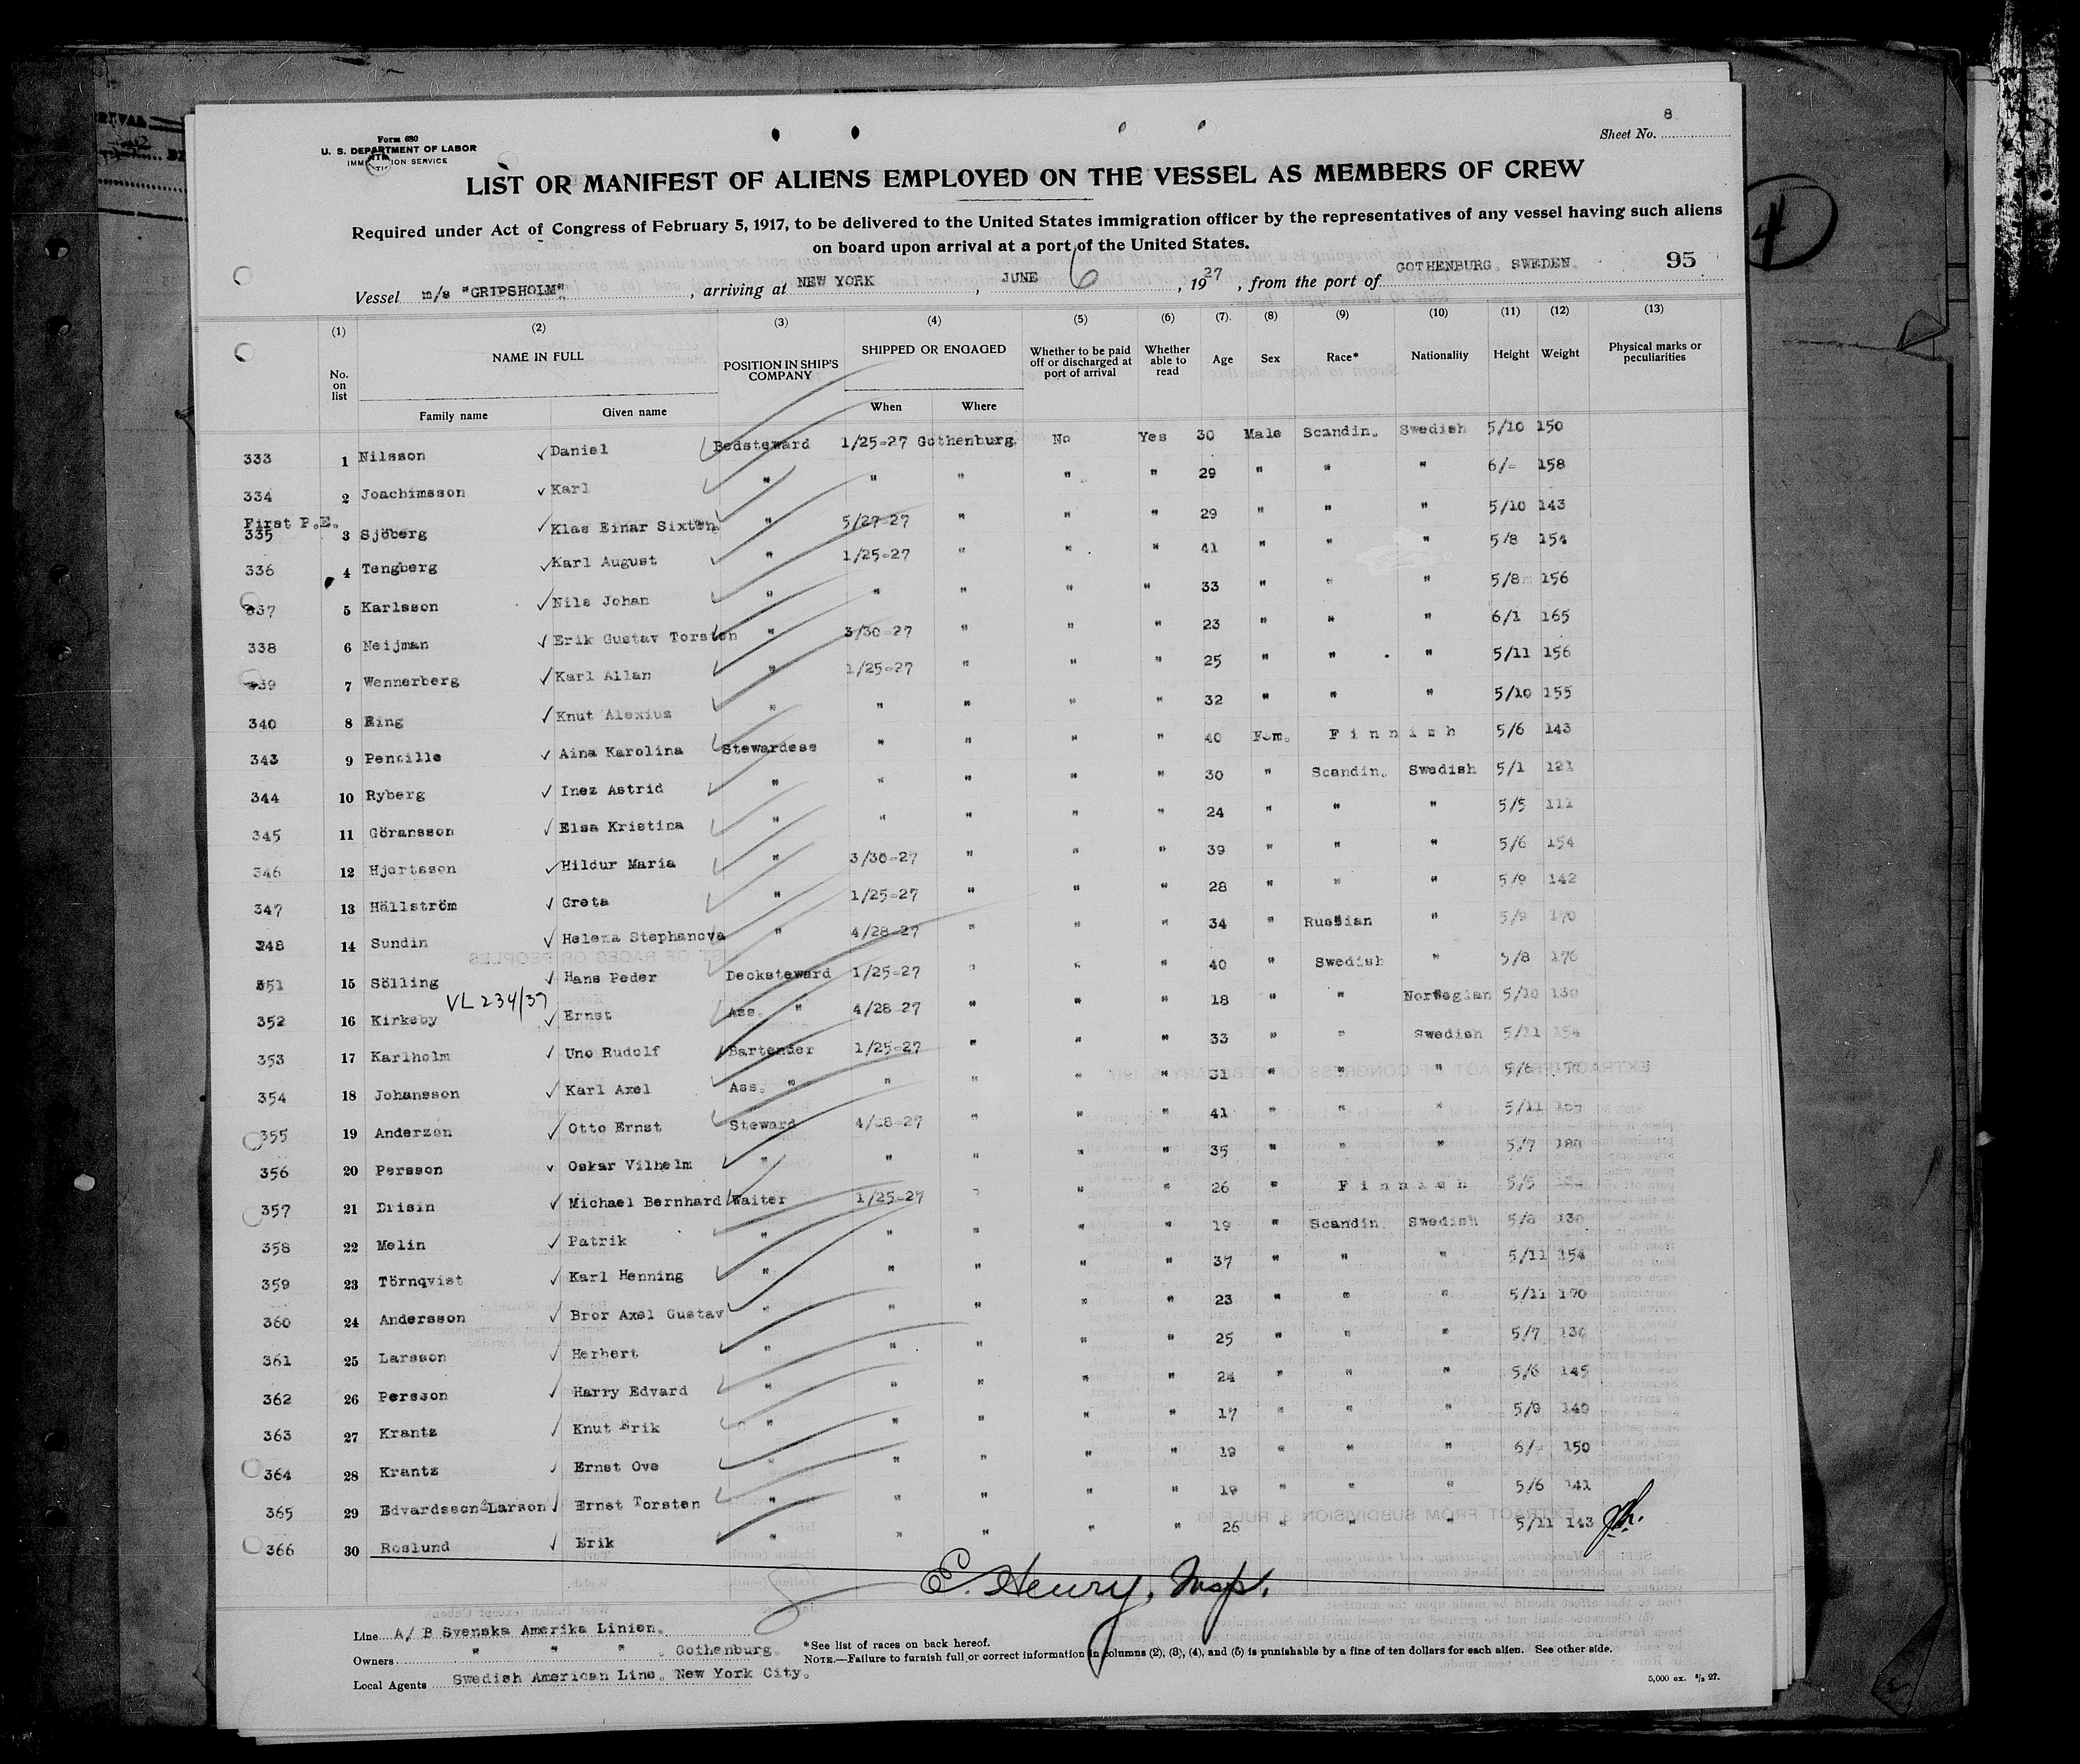 8
Sheet No.
Form 680
U. S. DEPARTMENT OF LABOR
IMMIGRATION SERVICE
LIST OR MANIFEST OF ALIENS EMPLOYED ON THE VESSEL AS MEMBERS OF CREW
Required under Act of Congress of February 5, 1917, to be delivered to the United States immigration officer by the representatives of any vessel having such aliens
on board upon arrival at a port of the United States.
4
95
Vessel m/s "GRIPSHOLM", arriving at NEW YORK, JUNE 6, 1927, from the port of GOTHENBURG. SWEDEN.
(1) (2) (3) (4) (5) (6) (7) (8) (9) (10) (11) (12) (13)
No. on list NAME IN FULL POSITION IN SHIP'S COMPANY SHIPPED OR ENGAGED Whether to be paid off or discharged at port of arrival Whether able to read Age Sex Race* Nationality Height Weight Physical marks or peculiarities
Family name Given name When Where
333 1 Nilsson Daniel Bedsteward 1/25-27 Gothenburg No Yes 30 Male Scandin. Swedish 5/10 150
334 2 Joachimsson Karl " " " " " 29 " " " 6/- 158
First P.E.
335 3 Sjöberg Klas Einar Sixten " 5/27-27 " " " 29 " " " 5/10 143
336 4 Tengberg Karl August " 1/25-27 " " " 41 " " " 5/8 154
337 5 Karlsson Nils Johan " " " " " 33 " " " 5/8 156
338 6 Neijman Erik Gustav Torsten " 3/30-27 " " " 23 " " " 6/1 165
339 7 Wennerberg Karl Allan " 1/25-27 " " " 25 " " " 5/11 156
340 8 Ring Knut Alexius " " " " " 32 " " " 5/10 155
343 9 Pentille Aina Karolina Stewardess " " " " 40 Fem. Finnish 5/6 143
344 10 Ryberg Inez Astrid " " " " " 30 " Scandin. Swedish 5/1 121
345 11 Göransson Elsa Kristina " " " " " 24 " " " 5/5 111
346 12 Hjortsson Hildur Maria " 3/30-27 " " " 39 " " " 5/6 154
347 13 Hällström Greta " 1/25-27 " " " 28 " " " 5/9 142
348 14 Sundin Helena Stephanova " 4/28-27 " " " 34 " Russian " 5/9 170
351 15 Sölling Hans Peder Decksteward 1/25-27 " " " 40 " Swedish " 5/8 176
VL 234/37
352 16 Kirkeby Ernst Ass. " 4/28-27 " " " 18 " " Norwegian 5/10 130
353 17 Karlholm Uno Rudolf Bartender 1/25-27 " " " 33 " " Swedish 5/11 154
354 18 Johansson Karl Axel Ass. " " " " " 31 " " " 5/6
355 19 Anderzon Otto Ernst Steward 4/28-27 " " " 41 " " " 5/11
356 20 Persson Oskar Vilhelm " " " " " 35 " " " 5/7
357 21 Drisin Michael Bernhard Waiter 1/25-27 " " " 26 " Finnish 5/5
358 22 Melin Patrik " " " " " 19 " Scandin. Swedish 5/8 130
359 23 Törnqvist Karl Henning " " " " " 37 " " " 5/11 154
360 24 Andersson Bror Axel Gustav " " " " " 23 " " " 5/11 170
361 25 Larsson Herbert " " " " " 25 " " " 5/7
362 26 Persson Harry Edvard " " " " " 24 " " " 5/6 145
363 27 Krantz Knut Erik " " " " " 17 " " " 5/9 140
364 28 Krantz Ernst Ove " " " " " 19 " " " 6/- 150
365 29 Edvardsson-Larson Ernst Torsten " " " " " 19 " " " 5/6 141
366 30 Roslund Erik " " " " " 26 " " " 5/11 143
E. Henry, Insp.
Line A/B Svenska Amerika Linien.
Owners " " " . Gothenburg.
Local Agents Swedish American Line. New York City.
*See list of races on back hereof.
NOTE.—Failure to furnish full or correct information in columns (2), (3), (4), and (5) is punishable by a fine of ten dollars for each alien. See other side.